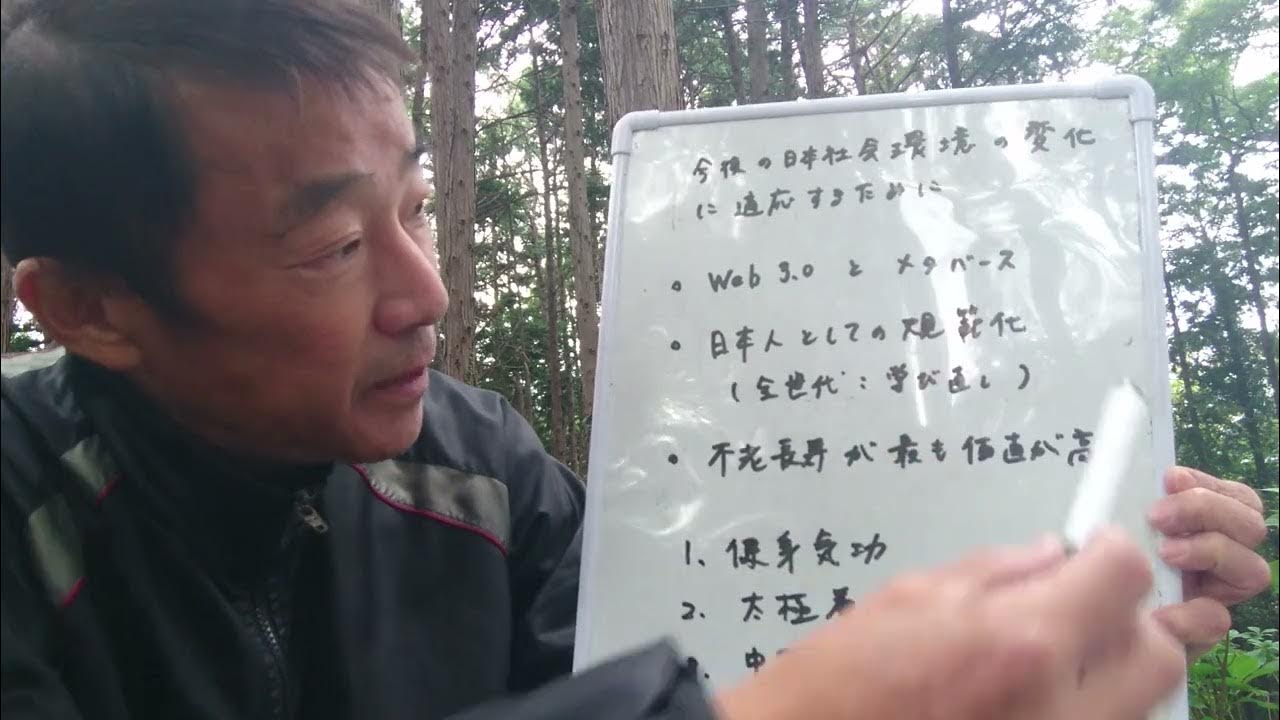 今後の日本社会環境の変化
に適応するために
• Web 3.0 と メタバース
• 日本人としての規範化
(全世代:学び直し)
• 不老長寿が最も価値が高
1. 保身気功
2. 太極
中